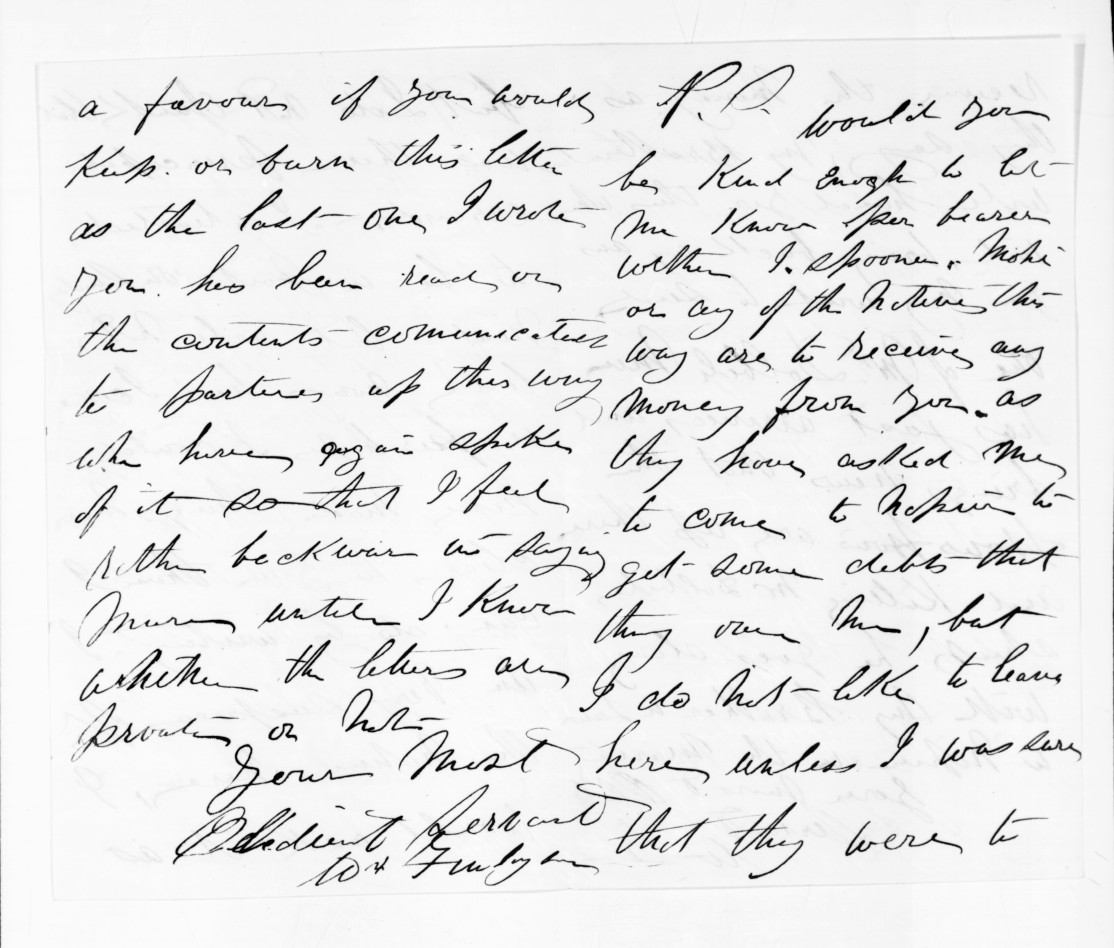 a favour if you would
Keep. or burn this letter
as the last one I wrote
you. has been read or
the contents comunicated
to parties up this way
who have again spoke
of it so that I feel
rather backwar in saying
more until I Know
whether the letters are
private or Not
Your Most
Obedient Servant
Wm Finlayson
P.S. would you
be Kind enough to let
me Know per bearer
wether I. Spooner. Mohi
or any of the Natives this
way are to receive any
money from you. as
they have asked me
to come to Napier to
get some debts that
they owe me, but
I do Not like to leave
here unless I was sure
that they were to